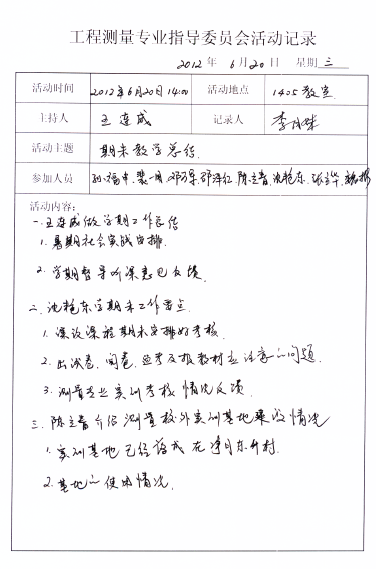 工程测量专业指导委员会活动记录
2012年 6月20日 星期三
活动时间 2012年6月20日14:00 活动地点 1405教室
主持人 王连威 记录人 李
活动主题 期末教学总结
参加人员 孙福中 邓万异 陈立春 沈艳东
活动内容:
一、王连威做学期工作总结
1. 暑期社会实践安排
2. 学期督导听课意见反馈
二、沈艳东学期末工作重点
1. 课改课程期末安排好考核
2. 出试卷、阅卷、监考及报教材应注意的问题
3. 测量专业实训考核情况反馈
三、陈立春介绍测量校外实训基地建设情况
1. 实训基地已经落成在净月东升村.
2. 基地的使用情况.